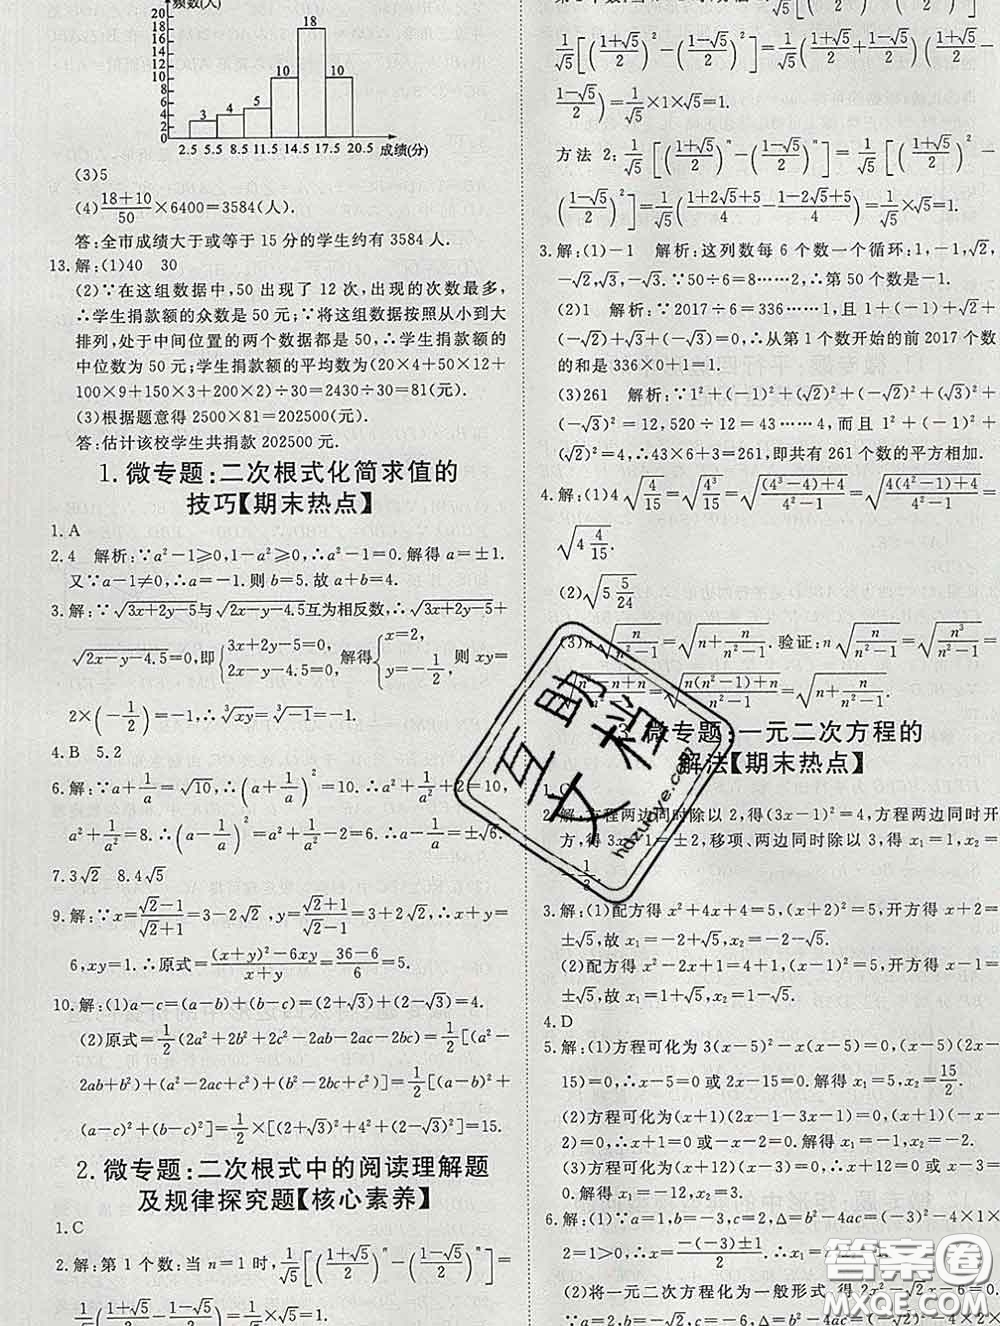 频数(人)
20
18
16
14
12
10
8
6
4
2
0
3 4 5 10 18 10
2.5 5.5 8.5 11.5 14.5 17.5 20.5 成绩(分)
(3)5
(4)(18+10)/50×6400=3584(人).
答:全市成绩大于或等于15分的学生约有3584人.
13.解:(1)40 30
(2)∵在这组数据中,50出现了12次,出现的次数最多,
∴学生捐款额的众数是50元;∵将这组数据按照从小到大
排列,处于中间位置的两个数据都是50,∴学生捐款额的
中位数为50元;学生捐款额的平均数为(20×4+50×12+
100×9+150×3+200×2)÷30=2430÷30=81(元).
(3)根据题意得2500×81=202500(元).
答:估计该校学生共捐款202500元.
1.微专题:二次根式化简求值的
技巧【期末热点】
1.A
2.4 解析:∵a²-1≥0,1-a²≥0,∴a²-1=0.解得a=±1.
又∵a-1≠0,∴a=-1.则b=5.故a+b=4.
3.解:∵√(3x+2y-5)与√(2x-y-4.5)互为相反数,∴√(3x+2y-5)+
√(2x-y-4.5)=0,即{3x+2y-5=0, 2x-y-4.5=0.解得{x=2, y=-1/2 则xy=
2×(-1/2)=-1,∴³√(xy)=³√(-1)=-1.
4.B 5.2
6.解:∵a+1/a=√10,∴(a+1/a)²=a²+1/a²+2=10,∴
a²+1/a²=8.∴(a-1/a)²=a²+1/a²-2=6.∴a-1/a=±√6.
7.3√2 8.4√5
9.解:∵x=(√2-1)/(√2+1)=3-2√2,y=(√2+1)/(√2-1)=3+2√2,∴x+y=
6,xy=1.∴原式=((x+y)²-6xy)/(x+y)=(36-6)/6=5.
10.解:(1)a-c=(a-b)+(b-c)=(2+√3)+(2-√3)=4.
(2)原式=1/2(2a²+2b²+2c²-2ab-2ac-2bc)=1/2[(a²-
2ab+b²)+(a²-2ac+c²)+(b²-2bc+c²)]=1/2[(a-b)²+
(a-c)²+(b-c)²]=1/2×[(2+√3)²+4²+(2-√3)²]=15.
2.微专题:二次根式中的阅读理解题
及规律探究题【核心素养】
1.C
2.解:第1个数:当n=1时,1/√5[((1+√5)/2)ⁿ-((1-√5)/2)ⁿ]=
1/√5[((1+√5)/2)²-((1-√5)/2)²]=1/√5((1+√5)/2+(1-√5)/2)((1+√5)/2-
(1-√5)/2)=1/√5×1×√5=1.
方法2:1/√5[((1+√5)/2)ⁿ-((1-√5)/2)ⁿ]=1/√5[((1+√5)/2)²-
((1-√5)/2)²]=1/√5((1+2√5+5)/4-(1-2√5+5)/4)=1/√5×√5=1.
3.解:(1)-1 解析:这列数每6个数一个循环:1,-1,√2,
-√2,√3,-√3.∵50÷6=8……2,∴第50个数是-1.
(2)1 解析:∵2017÷6=336……1,且1+(-1)+√2+
(-√2)+√3+(-√3)=0,∴从第1个数开始的前2017个数
的和是336×0+1=1.
(3)261 解析:∵1²+(-1)²+(√2)²+(-√2)²+(√3)²+
(-√3)²=12,520÷12=43……4,而且1²+(-1)²+
(√2)²=4,∴43×6+3=261,即共有261个数的平方相加.
4.解:(1)4√(4/15)=√(4³/15)=√(((4³-4)+4)/(4²-1))=√((4(4²-1)+4)/(4²-1))=
√(4 4/15).
(2)√(5 5/24)
(3)n√(n/(n²-1))=√(n+n/(n²-1)).验证:√(n/(n²-1))=√(n³/(n²-1))=
√((n³-n+n)/(n²-1))=√((n(n²-1)+n)/(n²-1))=√(n+n/(n²-1)).
微专题:一元二次方程的
解法【期末热点】
1.C
2.解:方程两边同时除以2,得(3x-1)²=4,方程两边同时开
方,得3x-1=±2,移项、两边同时除以3,得x₁=1,x₂=
-1/3.
3.解:(1)配方得x²+4x+4=5,(x+2)²=5,开方得x+2=
±√5,故x₁=-2+√5,x₂=-2-√5.
(2)配方得x²-2x+1=4+1,(x-1)²=5,开方得x-1=
±√5,故x₁=1+√5,x₂=1-√5.
4.D
5.解:(1)方程可化为3(x-5)²-x(x-5)=0,(x-5)(2x-
15)=0,∴x-5=0或2x-15=0.解得x₁=5,x₂=15/2.
(2)方程可化为(x+1)(2x-1-3x-1)=0,(x+1)(-x-
2)=0,∴x+1=0或-x-2=0.解得x₁=-1,x₂=-2.
6.解:(1)∵a=1,b=-3,c=2,Δ=b²-4ac=(-3)²-4×1×
2=1>0,∴x=
(2)将一元二次方程化为一般形式 得2x²-√2x-6=0.
互助文档
hdzuoye.com
答案圈
MXQE.COM